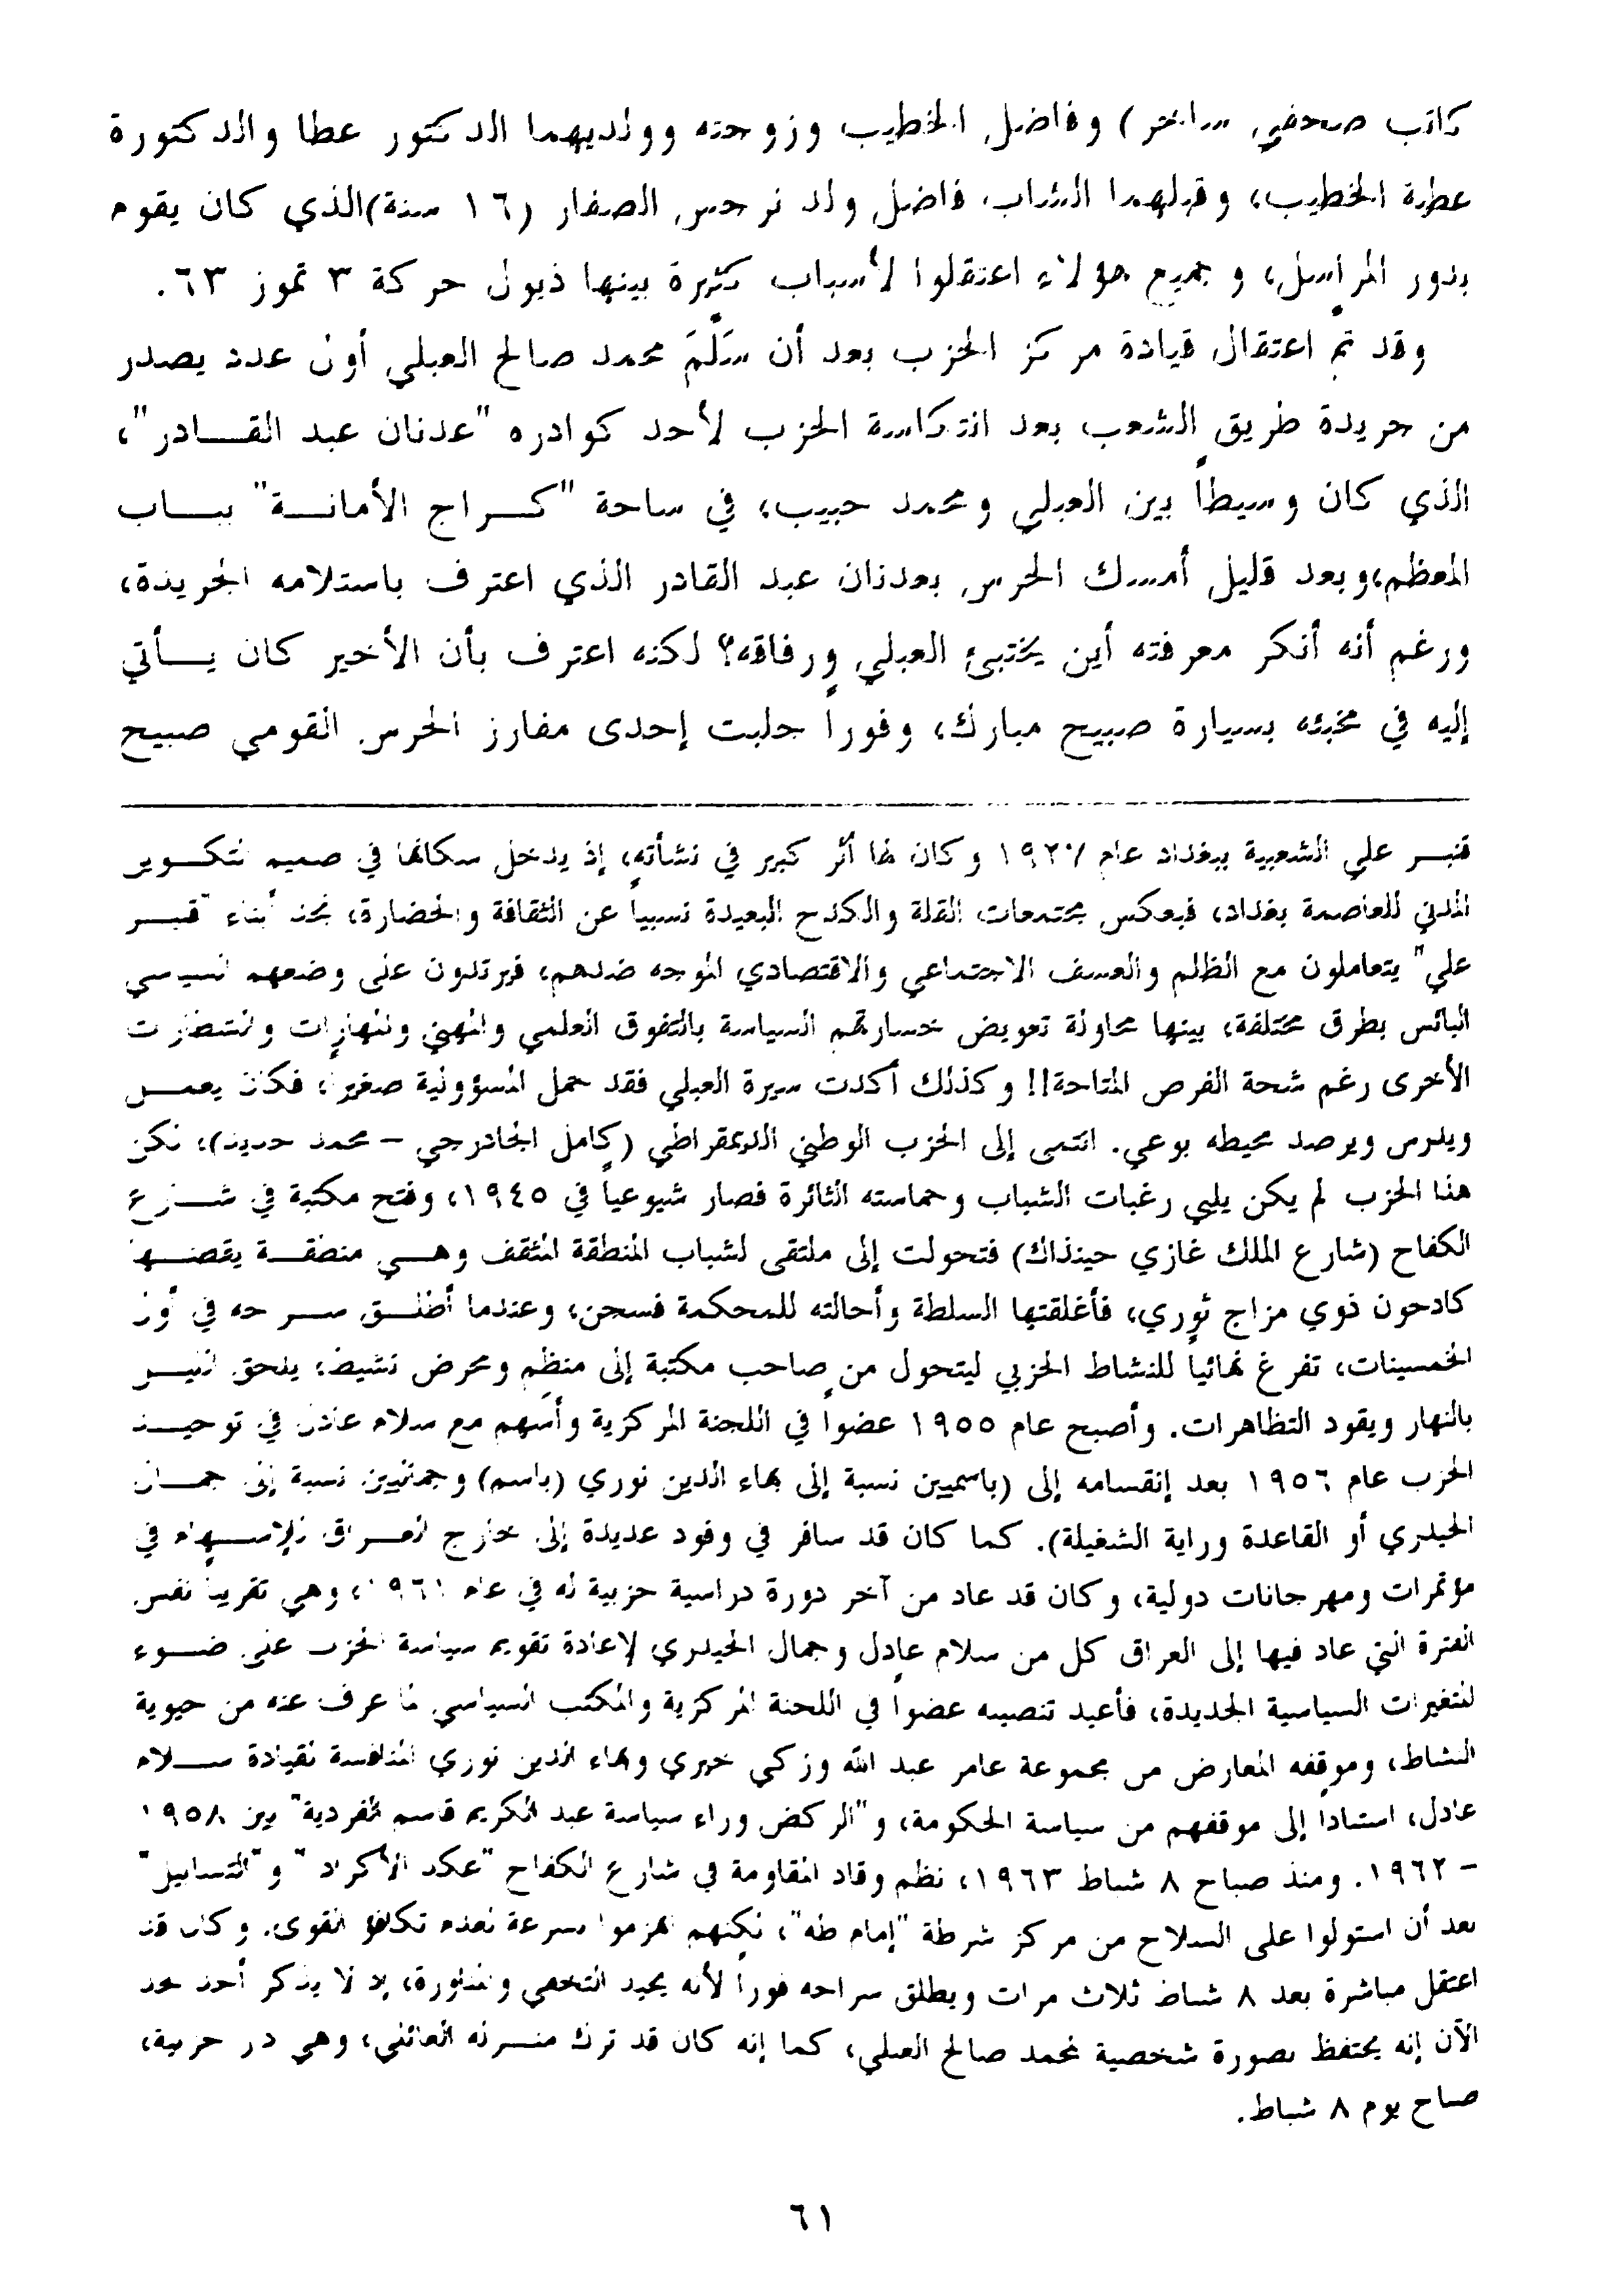 كاتب صحفي ساخر) وفاضل الخطيب وزوجته وولديهما الدكتور عطا والدكتورة
عطية الخطيب، وقبلهما الشاب فاضل ولد نرجس الصفار (١٦ سنة)الذي كان يقوم
بدور المراسل، و جميع هؤلاء اعتقلوا لأسباب كثيرة بينها ذيول حركة ٣ تموز ٦٣.
وقد تم اعتقال قيادة مركز الحزب بعد أن سَلَّمَ محمد صالح العبلي أول عدد يصدر
من جريدة طريق الشعب بعد انتكاسة الحزب لأحد كوادره "عدنان عبد القـــادر"،
الذي كان وسيطاً بين العبلي ومحمد حبيب، في ساحة "كـــراج الأمانـــة" ببـــاب
المعظم،وبعد قليل أمسك الحرس بعدنان عبد القادر الذي اعترف باستلامه الجريدة،
ورغم أنه أنكر معرفته أين يختبئ العبلي ورفاقه؟ لكنه اعترف بأن الأخير كان يـــأتي
إليه في مخبئه بسيارة صبيح مبارك، وفوراً جلبت إحدى مفارز الحرس القومي صبيح
قنبـــر علي الشعبية ببغداد عام وكان لها أثر كبير في نشأته، إذ يدخل سكانها في صميم التكـــوير
المدني للعاصمة بغداد، فبعكس مجتمعات القلة والكدح البعيدة نسبياً عن الثقافة والحضارة، نجد أبناء "قنبـــر
علي" يتعاملون مع الظلم والعسف الاجتماعي والاقتصادي الموجه ضدهم، فيرتدون على وضعهم السياسي
البائس بطرق مختلفة، بينها محاولة تعويض خسارتهم السياسة بالتفوق العلمي والمهني والمهارات والنشاطات
الأخرى رغم شحة الفرص المتاحة!! وكذلك أكدت سيرة العبلي فقد حمل المسؤولية صغيراً، فكان يعمـــل
ويدرس ويرصد محيطه بوعي. انتمى إلى الحزب الوطني الديمقراطي (كامل الجادرجي – محمد حديد)، لكن
هذا الحزب لم يكن يلبي رغبات الشباب وحماسته الثائرة فصار شيوعياً في ١٩٤٥، وفتح مكتبة في شـــارع
الكفاح (شارع الملك غازي حينذاك) فتحولت إلى ملتقى لشباب المنطقة المثقف وهـــي منطقـــة يقطنـــها
كادحون ذوي مزاج ثوري، فأغلقتها السلطة وأحالته للمحكمة فسجن، وعندما أطلـــق ســـراحه في أول
الخمسينات، تفرغ نهائياً للنشاط الحزبي ليتحول من صاحب مكتبة إلى منظِم ومحرض نشيط، يلحق الليـــل
بالنهار ويقود التظاهرات. وأصبح عام ١٩٥٥ عضواً في اللجنة المركزية وأسهم مع سلام عادل في توحيـــد
الحزب عام ١٩٥٦ بعد إنقسامه إلى (باسميين نسبة إلى بهاء الدين نوري (باسم) وجماليين نسبة إلى جمـــال
الحيدري أو القاعدة وراية الشغيلة). كما كان قد سافر في وفود عديدة إلى خارج العـــراق للإســـهام في
مؤتمرات ومهرجانات دولية، وكان قد عاد من آخر دورة دراسية حزبية له في عام ١٩٦١، وهي تقريباً نفس
الفترة التي عاد فيها إلى العراق كل من سلام عادل وجمال الحيدري لإعادة تقويم سياسة الحزب على ضـــوء
المتغيرات السياسية الجديدة، فأعيد تنصيبه عضواً في اللجنة المركزية والمكتب السياسي لما عرف عنه من حيوية
النشاط، وموقفه المعارض من مجموعة عامر عبد الله وزكي خيري وبهاء الدين نوري المنافسة لقيادة ســـلام
عادل، استناداً إلى موقفهم من سياسة الحكومة، و"الركض وراء سياسة عبد الكريم قاسم الفردية" بين ١٩٥٨
– ١٩٦٢. ومنذ صباح ٨ شباط ١٩٦٣، نظم وقاد المقاومة في شارع الكفاح "عكد الأكراد" و"التسابيل"
بعد أن استولوا على السلاح من مركز شرطة "إمام طه"، لكنهم هزموا بسرعة لعدم تكافؤ القوى. وكان قد
اعتقل مباشرة بعد ٨ شباط ثلاث مرات ويطلق سراحه فوراً لأنه يجيد التخفي والمناورة، إذ لا يذكر أحد لحد
الآن إنه يحتفظ بصورة شخصية لمحمد صالح العبلي، كما إنه كان قد ترك منـــزله العائلي، وهي دار حزبية،
صباح يوم ٨ شباط.
٦١